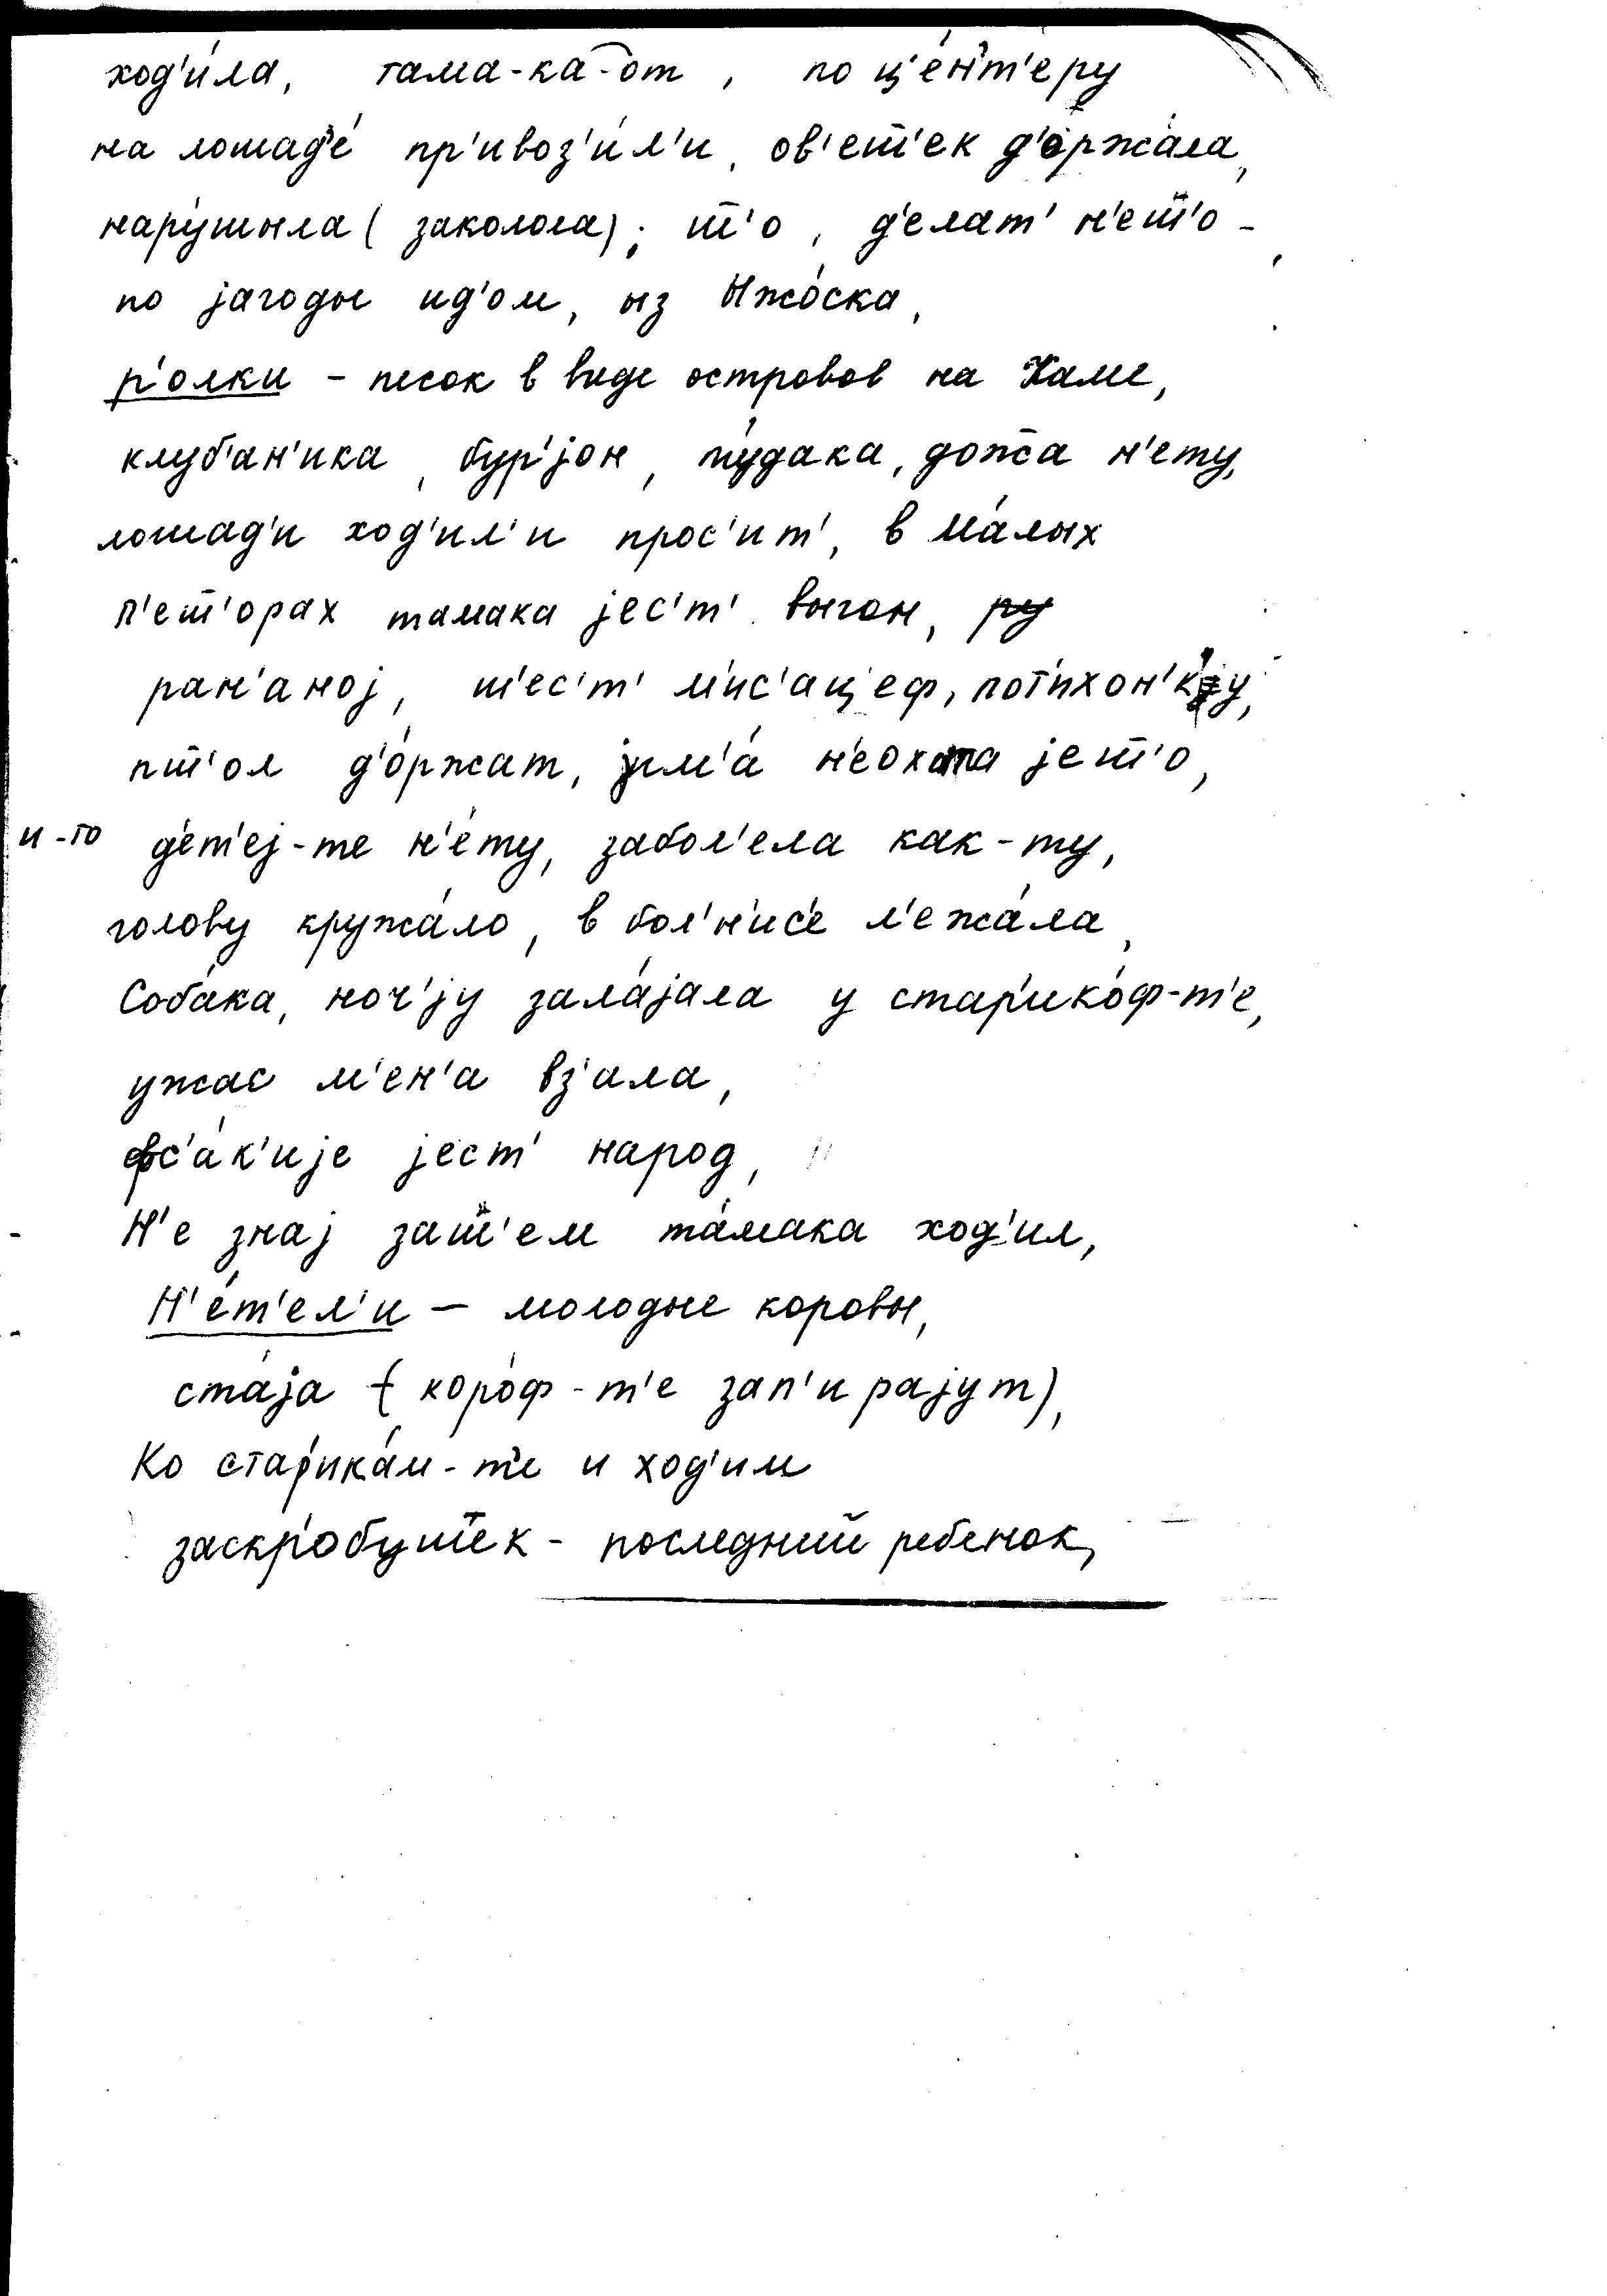 ход'и́ла, тама-ка-от, по ц'е́нт'еру
на лошад'е́ пр'ивоз'и́л'и, ов'еш'ек д'оржа́ла,
нару́шыла (заколола); ш'о, д'елат' н'еш'о -
по јагоды ид'ом, из Ижо́ска,
р'олки - песок в виде островов на Каме,
клуб'ан'ика, бур'јон, пудака, дожа н'ету,
лошад'и ход'ил'и прос'ит', в ма́лых
п'еш'орах тамака јес'т' выгон,
ран'аној, ш'ес'т' м'ис'ац'еф, пот'ихон'ку,
пш'ол д'о́ржат, з'им'а́ н'еохота јеш'о,
и-то д'ет'еј-те н'е́ту, забол'ела как-ту,
голову кружа́ло, в бол'н'ис'е л'ежа́ла,
Соба́ка, ноч'ју зала́јала у стар'ико́ф-т'е,
ужас м'ен'а вз'ала,
фс'а́к'ије јест' народ,
Н'е знај заш'ем та́мака ход'ил,
Н'е́т'ел'и — молодые коровы,
ста́ја (коро́ф-т'е зап'ирајут),
Ко стар'ика́м-т'е и ход'им
заскр'обушек - последний ребенок,